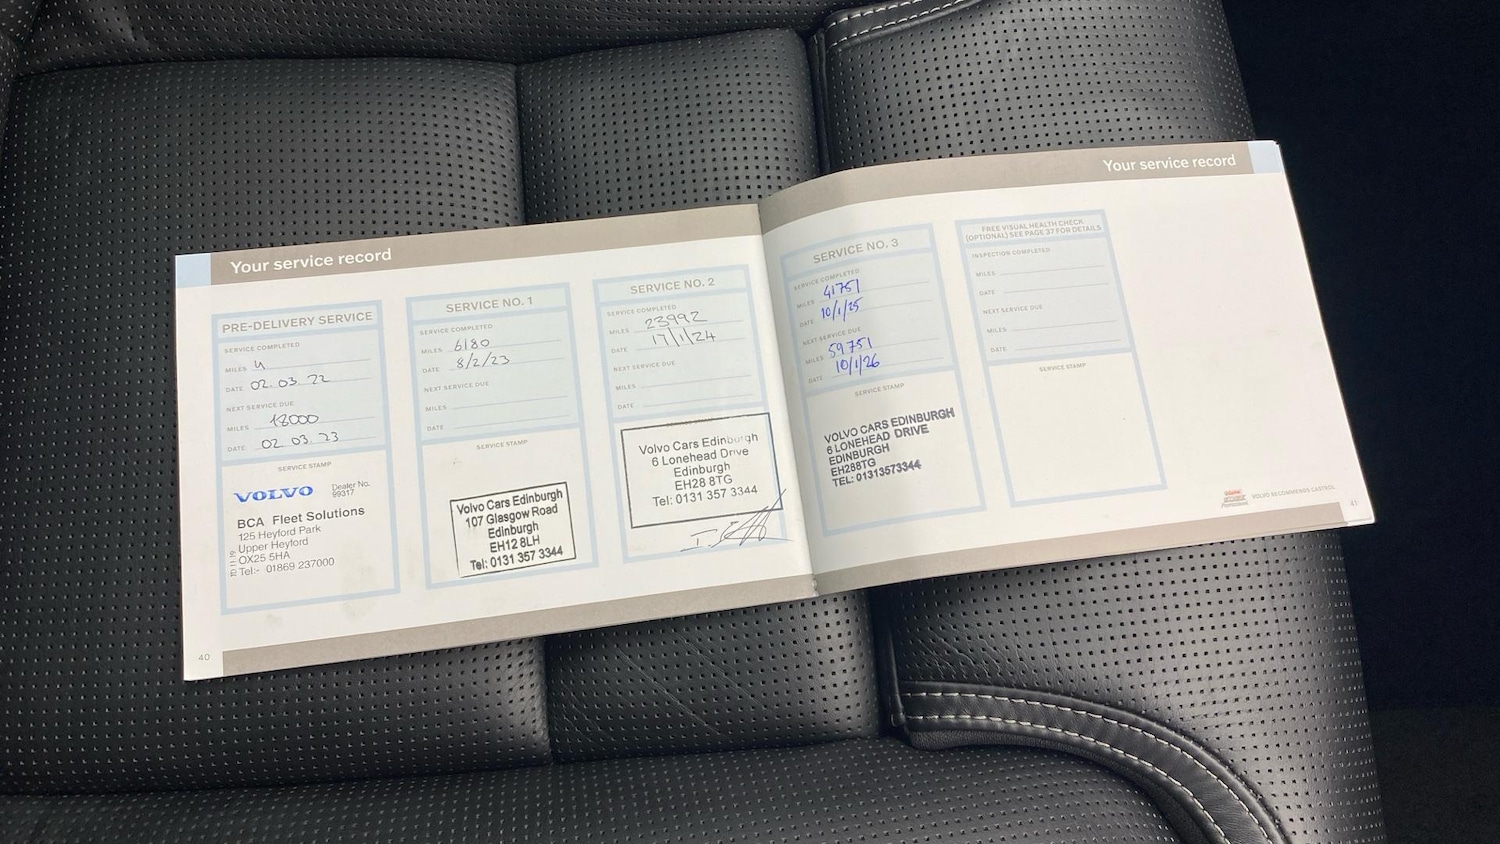 Your service record
PRE-DELIVERY SERVICE
SERVICE COMPLETED
MILES 4
DATE 02.03.22
NEXT SERVICE DUE
MILES 18000
DATE 02.03.23
SERVICE STAMP
VOLVO
Dealer No.
99317
BCA Fleet Solutions
125 Heyford Park
Upper Heyford
OX25 5HA
Tel:- 01869 237000
40
SERVICE NO. 1
SERVICE COMPLETED
MILES 6180
DATE 8/2/23
NEXT SERVICE DUE
MILES
DATE
SERVICE STAMP
Volvo Cars Edinburgh
107 Glasgow Road
Edinburgh
EH12 8LH
Tel: 0131 357 3344
SERVICE NO. 2
SERVICE COMPLETED
MILES 23992
DATE 17/1/24
NEXT SERVICE DUE
MILES
DATE
Volvo Cars Edinburgh
6 Lonehead Drive
Edinburgh
EH28 8TG
Tel: 0131 357 3344
Your service record
SERVICE NO. 3
SERVICE COMPLETED
MILES 41751
DATE 10/1/25
NEXT SERVICE DUE
MILES 59751
DATE 10/1/26
SERVICE STAMP
VOLVO CARS EDINBURGH
6 LONEHEAD DRIVE
EDINBURGH
EH288TG
TEL: 01313573344
FREE VISUAL HEALTH CHECK
(OPTIONAL) SEE PAGE 37 FOR DETAILS
INSPECTION COMPLETED
MILES
DATE
NEXT SERVICE DUE
MILES
DATE
SERVICE STAMP
VOLVO RECOMMENDS CASTROL
41